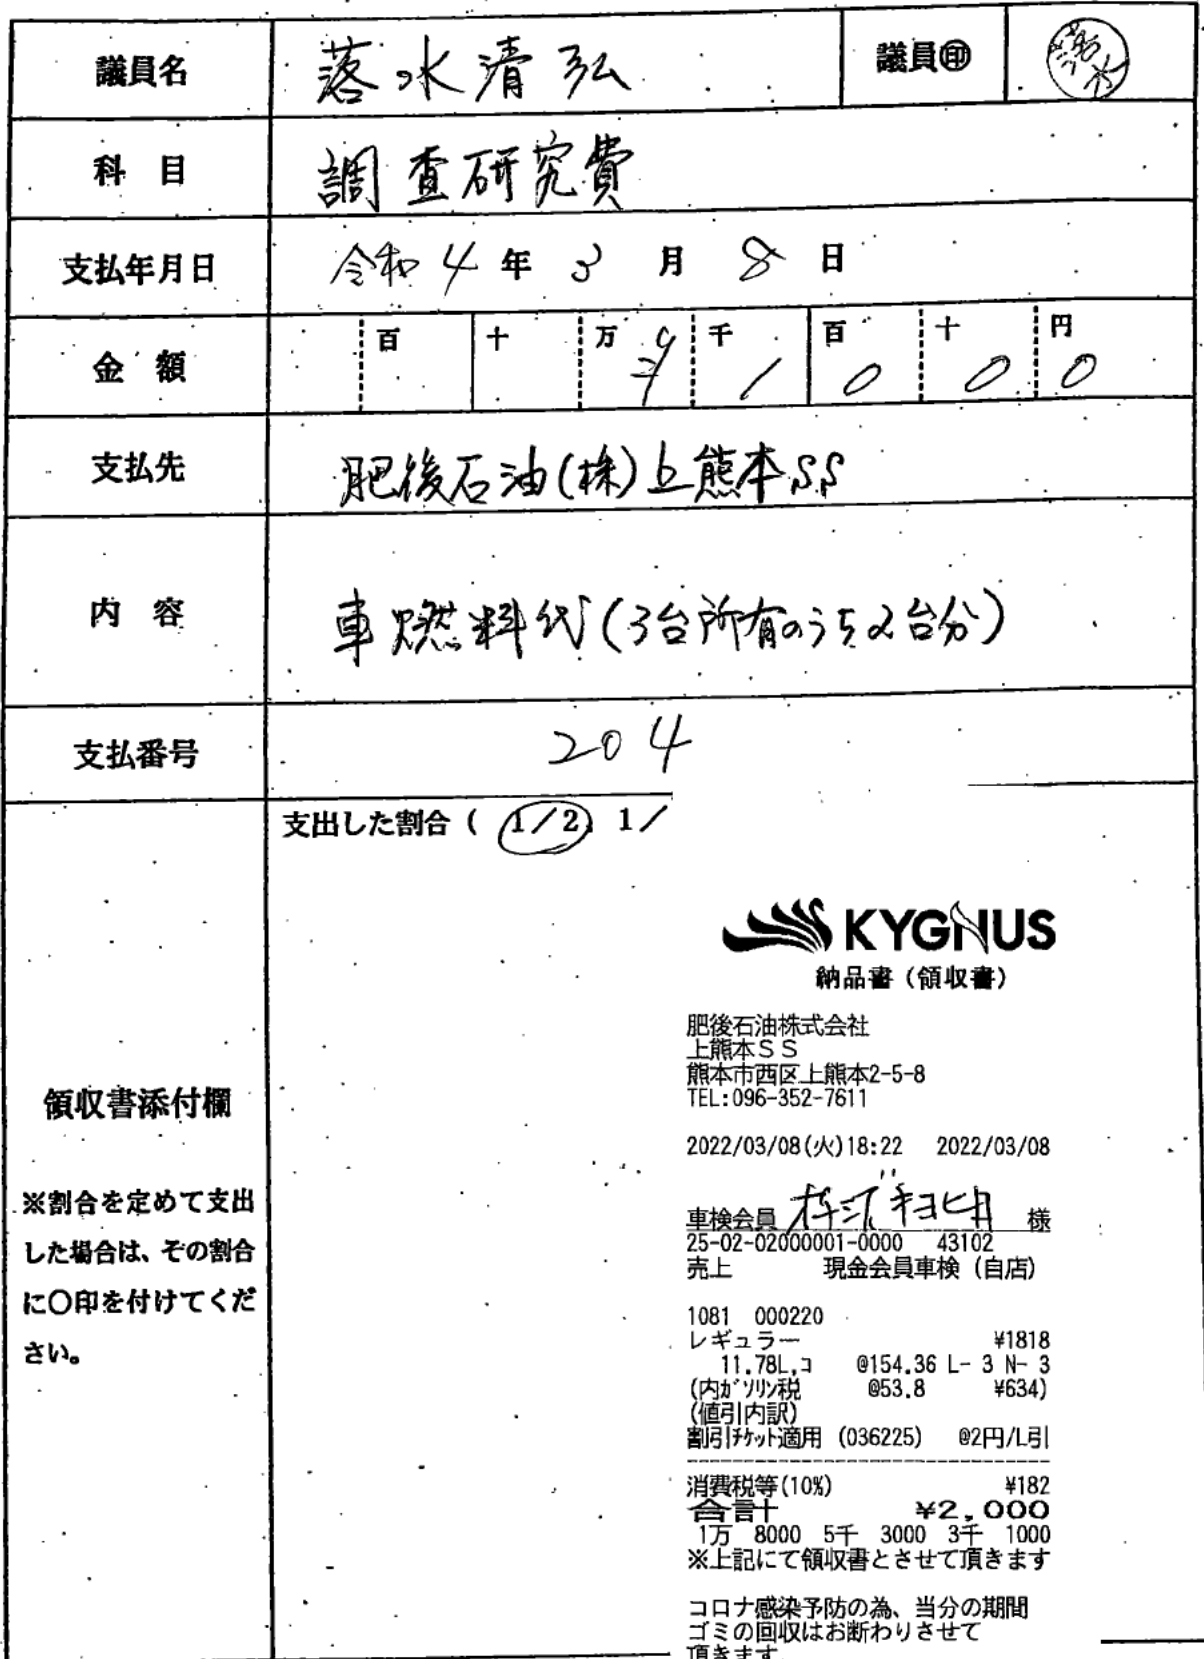 議員名 落水清弘 議員㊞ 落水
科 目 調査研究費
支払年月日 令和4年3月8日
金 額 百 十 万 千 百 十 円
¥ 1 0 0 0
支払先 肥後石油(株)上熊本SS
内 容 車燃料代(3台所有のうち2台分)
支払番号 204
支出した割合 ( 1/2, 1/
KYGNUS
納品書(領収書)
肥後石油株式会社
上熊本SS
熊本市西区上熊本2-5-8
TEL:096-352-7611
領収書添付欄
2022/03/08(火)18:22 2022/03/08
※割合を定めて支出
した場合は、その割合
に〇印を付けてくだ
さい。
車検会員 様
25-02-02000001-0000 43102
売上 現金会員車検(自店)
1081 000220
レギュラー ¥1818
11.78L,コ @154.36 L- 3 N- 3
(内ガソリン税 @53.8 ¥634)
(値引内訳)
割引チケット適用 (036225) @2円/L引
消費税等(10%) ¥182
合計 ¥2,000
1万 8000 5千 3000 3千 1000
※上記にて領収書とさせて頂きます
コロナ感染予防の為、当分の期間
ゴミの回収はお断わりさせて
頂きます